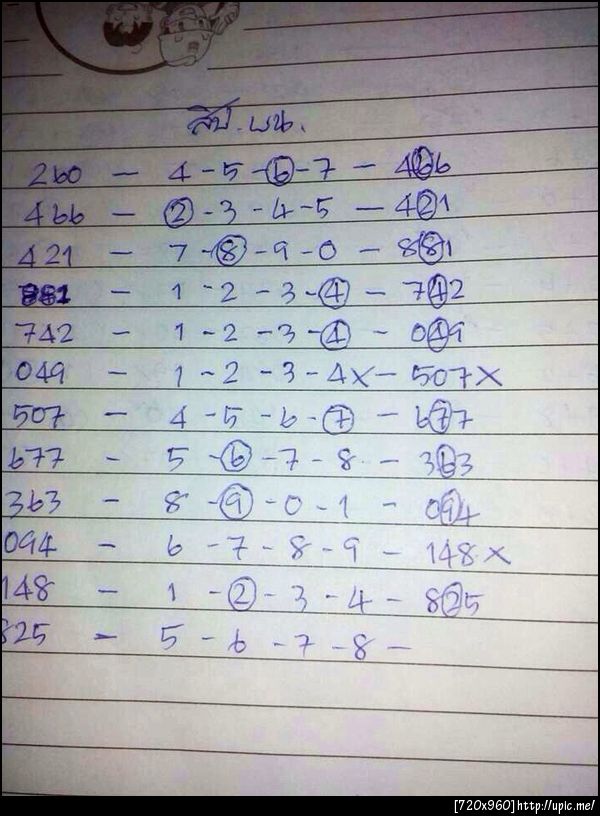 สิบ.บน.
260 - 4-5-6-7 - 466
466 - 2-3-4-5 - 421
421 - 7-8-9-0 - 881
881 - 1-2-3-4 - 742
742 - 1-2-3-4 - 049
049 - 1-2-3-4x - 507x
507 - 4-5-6-7 - 677
677 - 5-6-7-8 - 363
363 - 8-9-0-1 - 094
094 - 6-7-8-9 - 148x
148 - 1-2-3-4 - 825
825 - 5-6-7-8 -
[720x960]http://upic.me/